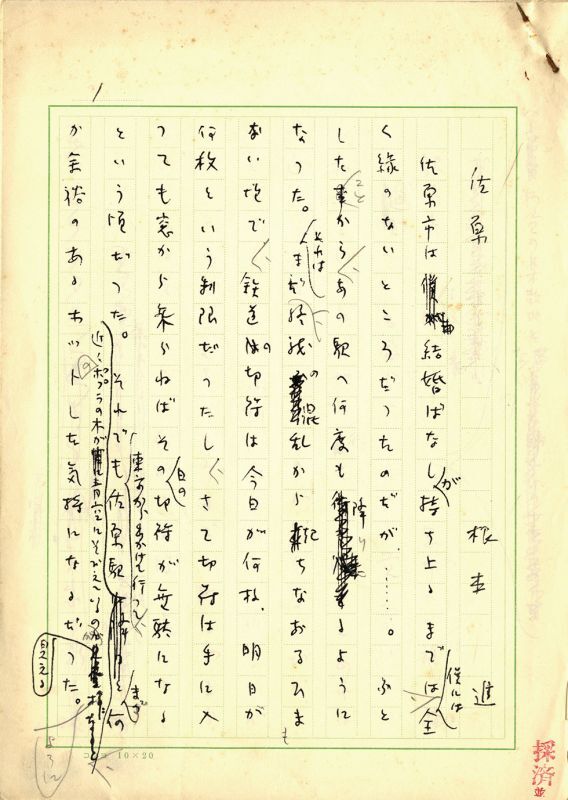 1
佐原
根本 進
佐原市は結婚ばなしが持ち上るまでは僕には全
く縁のないところだったのだが……。ふと
したことからあの駅へ何度も降りるように
なった。それはまだ終戦の混乱から立ちなおるひま
もない頃で、鉄道の切符は今日が何枚、明日が
何枚という制限だったし、さて切符は手に入
っても窓から乗らねばその日の切符が無駄になる
という頃だった。それでも東京から出かけて行って佐原駅まで
近くのポプラの木が青空にそびえているのが見える
と何
か余裕のあるホットした気持になるのだった。
ように
10×20
採済
並